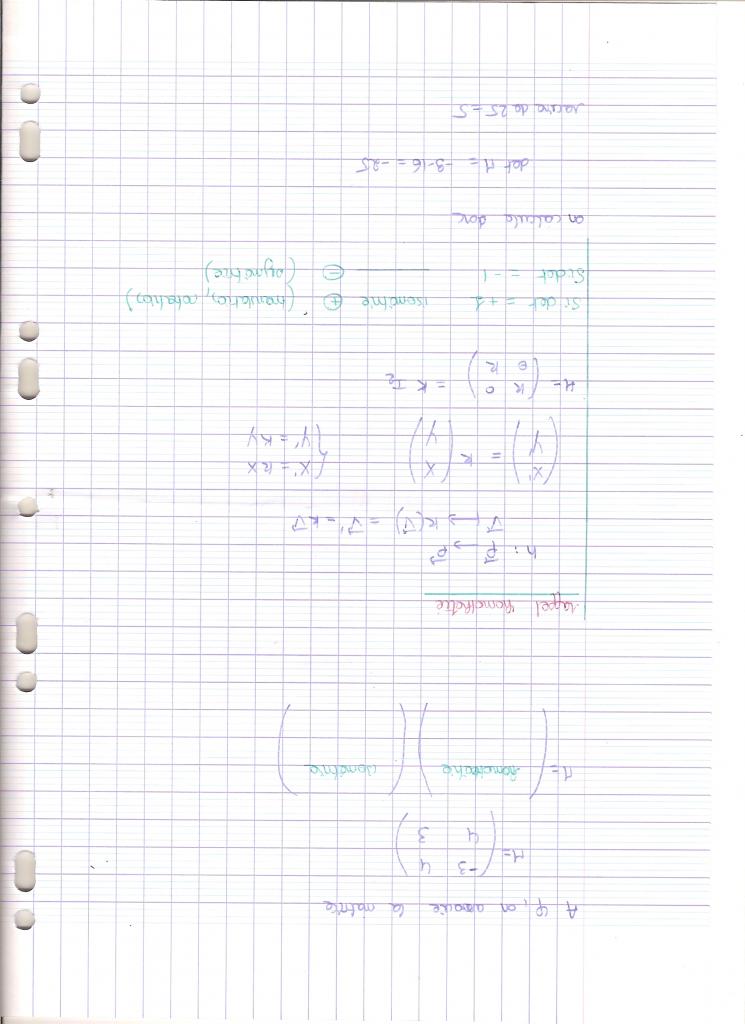 A φ, on associe la matrice
M = ( -3 4
4 3 )
M = ( homothétie ) ( isométrie )
rappel homothétie
h : P⃗ → P⃗
v⃗ ↦ h(v⃗) = v⃗' = k v⃗
( x' y' ) = k ( x y ) { x' = kx
y' = ky
H = ( k 0
0 k ) = k I₂
Si det = +1 isométrie ⊕ (translation, rotation)
Si det = -1 ——— ⊖ (symétrie)
on calcule donc
det M = -9-16 = -25
racine de 25 = 5